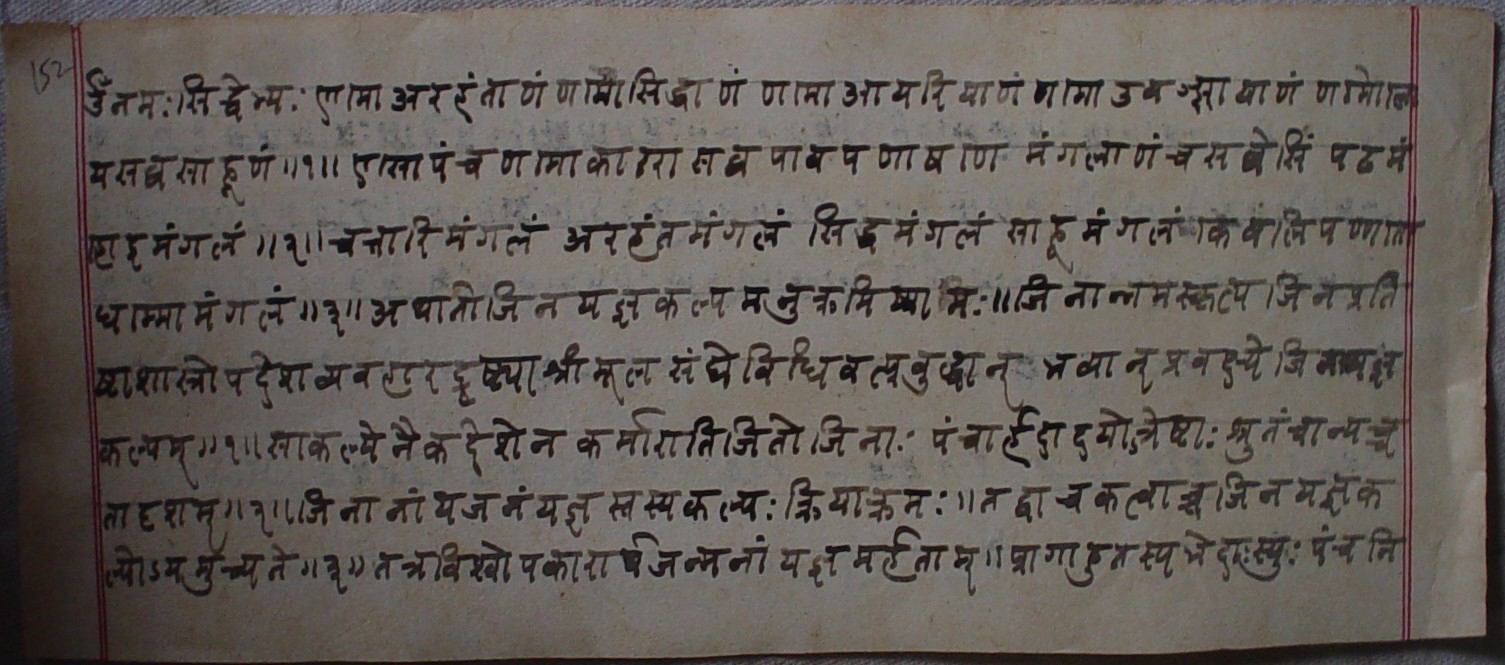 152
ॐ नमः सिद्धेभ्यः णमो अरहंताणं णमो सिद्धाणं णमो आयरियाणं णमो उवज्झायाणं णमो लो
य सव्वसाहूणं ॥१॥ एसो पंच णमोकारो सव्व पावपणाषणि मंगलाणं च सव्वेसिं पढमं
होइ मंगलं ॥२॥ चत्तारि मंगलं अरहंतमंगलं सिद्धमंगलं साहूमंगलं केवलिपण्णतो
धम्मो मंगलं ॥३॥ अथातो जिनयज्ञकल्पमनुक्रमिष्यामः ॥ जिनान्नमस्कृत्य जिनप्रति
ष्ठाशास्त्रोपदेशव्यवहारदृष्ट्या श्रीमूलसंघे विधिवत्प्रबुद्धान् भव्यान् प्रवक्ष्ये जिनयज्ञ
कल्पम् ॥१॥ साकल्येनैकदेशेन कर्मारातिजितो जिनाः पंचार्हदादयोऽत्रेष्टाः श्रुतं चान्यच्च
तादृशम् ॥२॥ जिनानां यजनं यज्ञस्तस्य कल्पः क्रियाक्रमः ॥ तद्वाचकत्वाच्च जिनयज्ञक
ल्पोऽयमुच्यते ॥३॥ तत्र विश्वोपकारार्थजन्मनां यज्ञमर्हताम् ॥ प्रागाहुतस्य भेदाः स्युः पंच नि